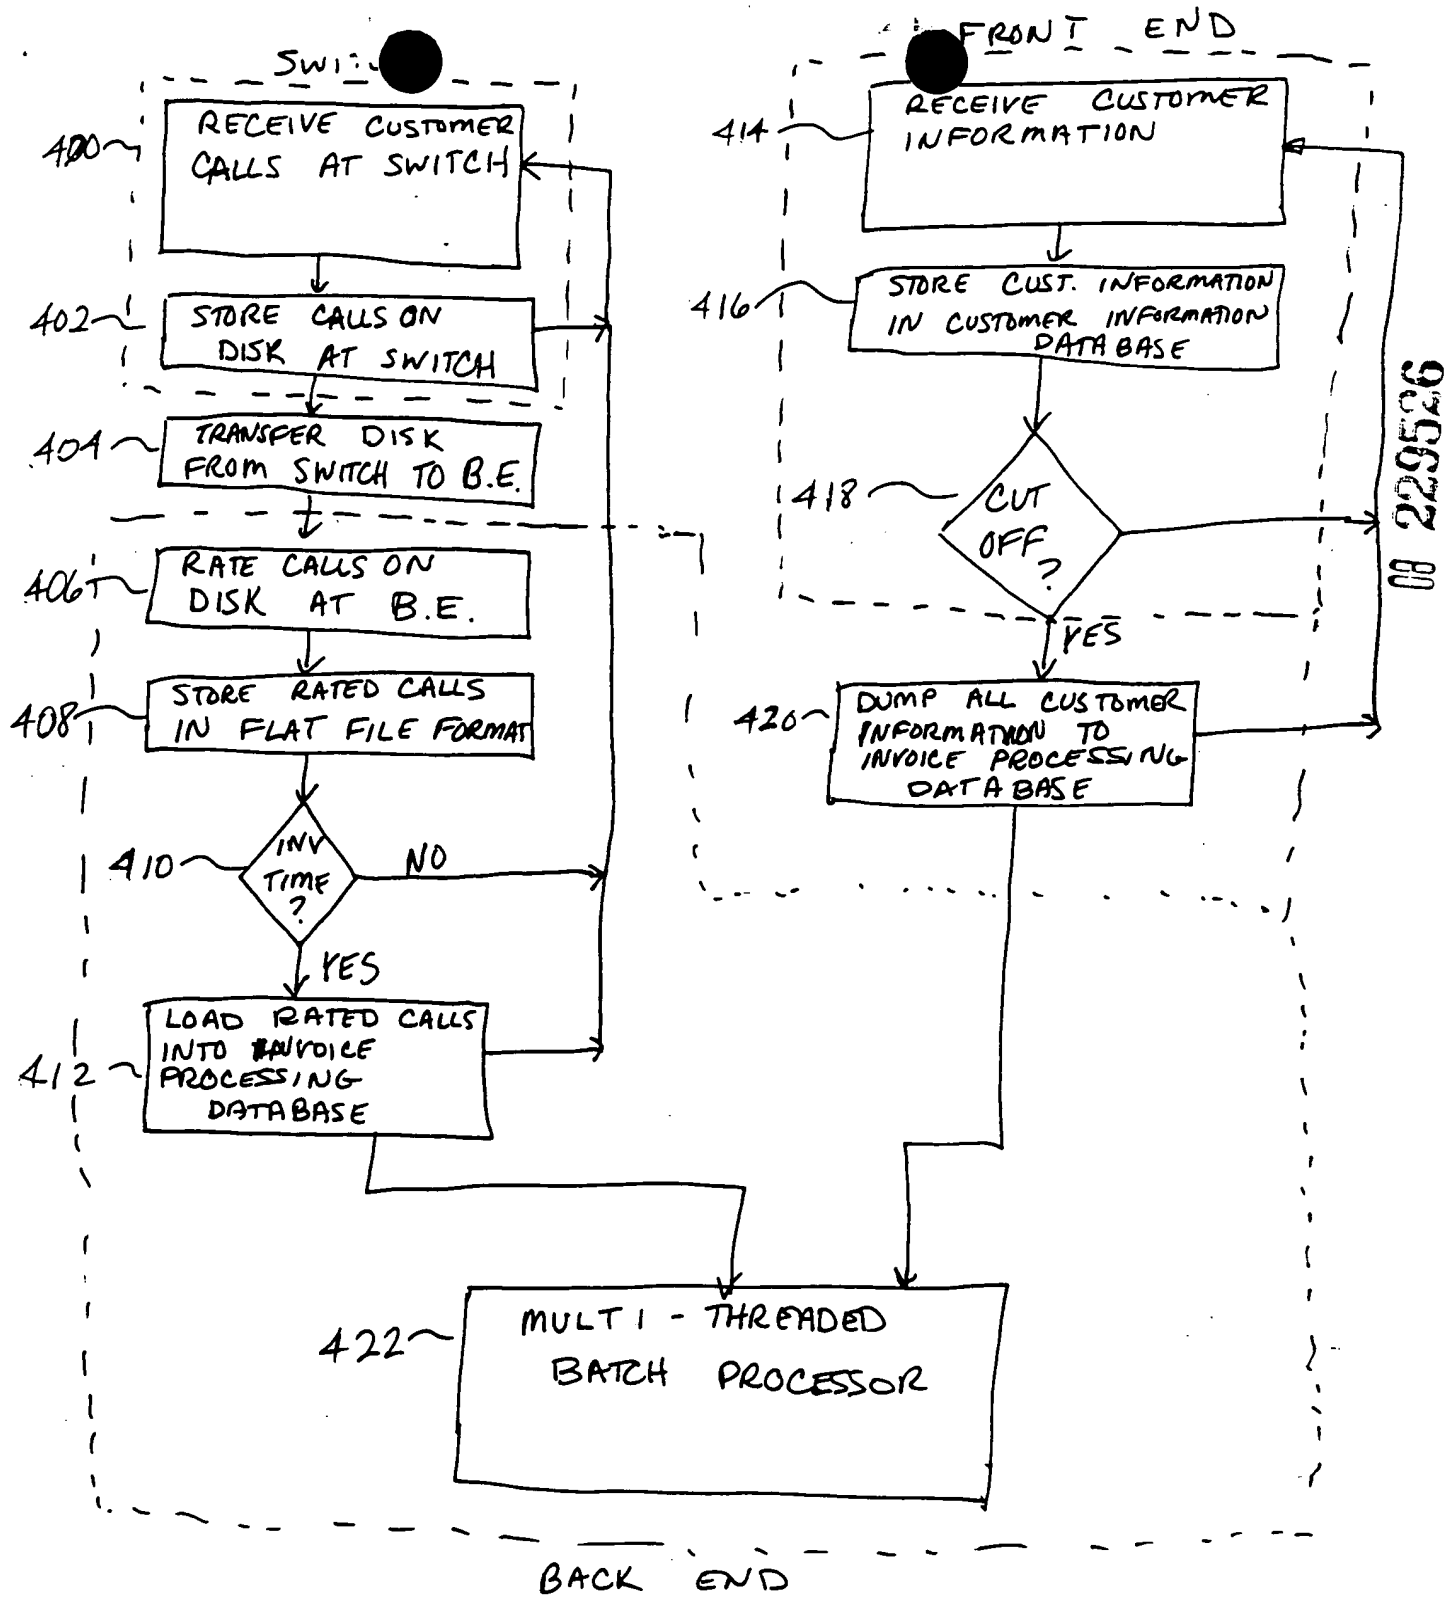 FRONT END
400
RECEIVE CUSTOMER
CALLS AT SWITCH
402
STORE CALLS ON
DISK AT SWITCH
404
TRANSFER DISK
FROM SWITCH TO B.E.
406
RATE CALLS ON
DISK AT B.E.
408
STORE RATED CALLS
IN FLAT FILE FORMAT
410
INV
TIME
?
NO
YES
412
LOAD RATED CALLS
INTO INVOICE
PROCESSING
DATABASE
414
RECEIVE CUSTOMER
INFORMATION
416
STORE CUST. INFORMATION
IN CUSTOMER INFORMATION
DATABASE
418
CUT
OFF
?
YES
420
DUMP ALL CUSTOMER
INFORMATION TO
INVOICE PROCESSING
DATABASE
422
MULTI-THREADED
BATCH PROCESSOR
BACK END
08 229526